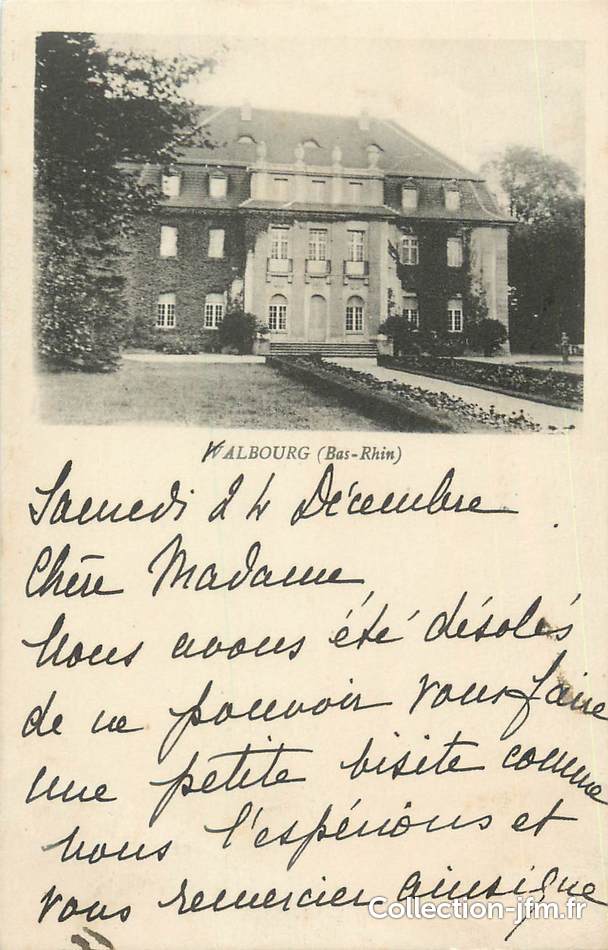 WALBOURG (Bas-Rhin)
Samedi 24 Décembre
Chère Madame,
Nous avons été désolés
de ne pouvoir vous faire
une petite visite comme
nous l'espérions et
vous remercier ainsi que
Collection-jfm.fr